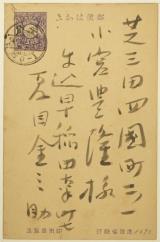 郵便はがき
芝三田四國町二ノ一
小宮豊隆様
牛込早稲田南町七
夏目金之助